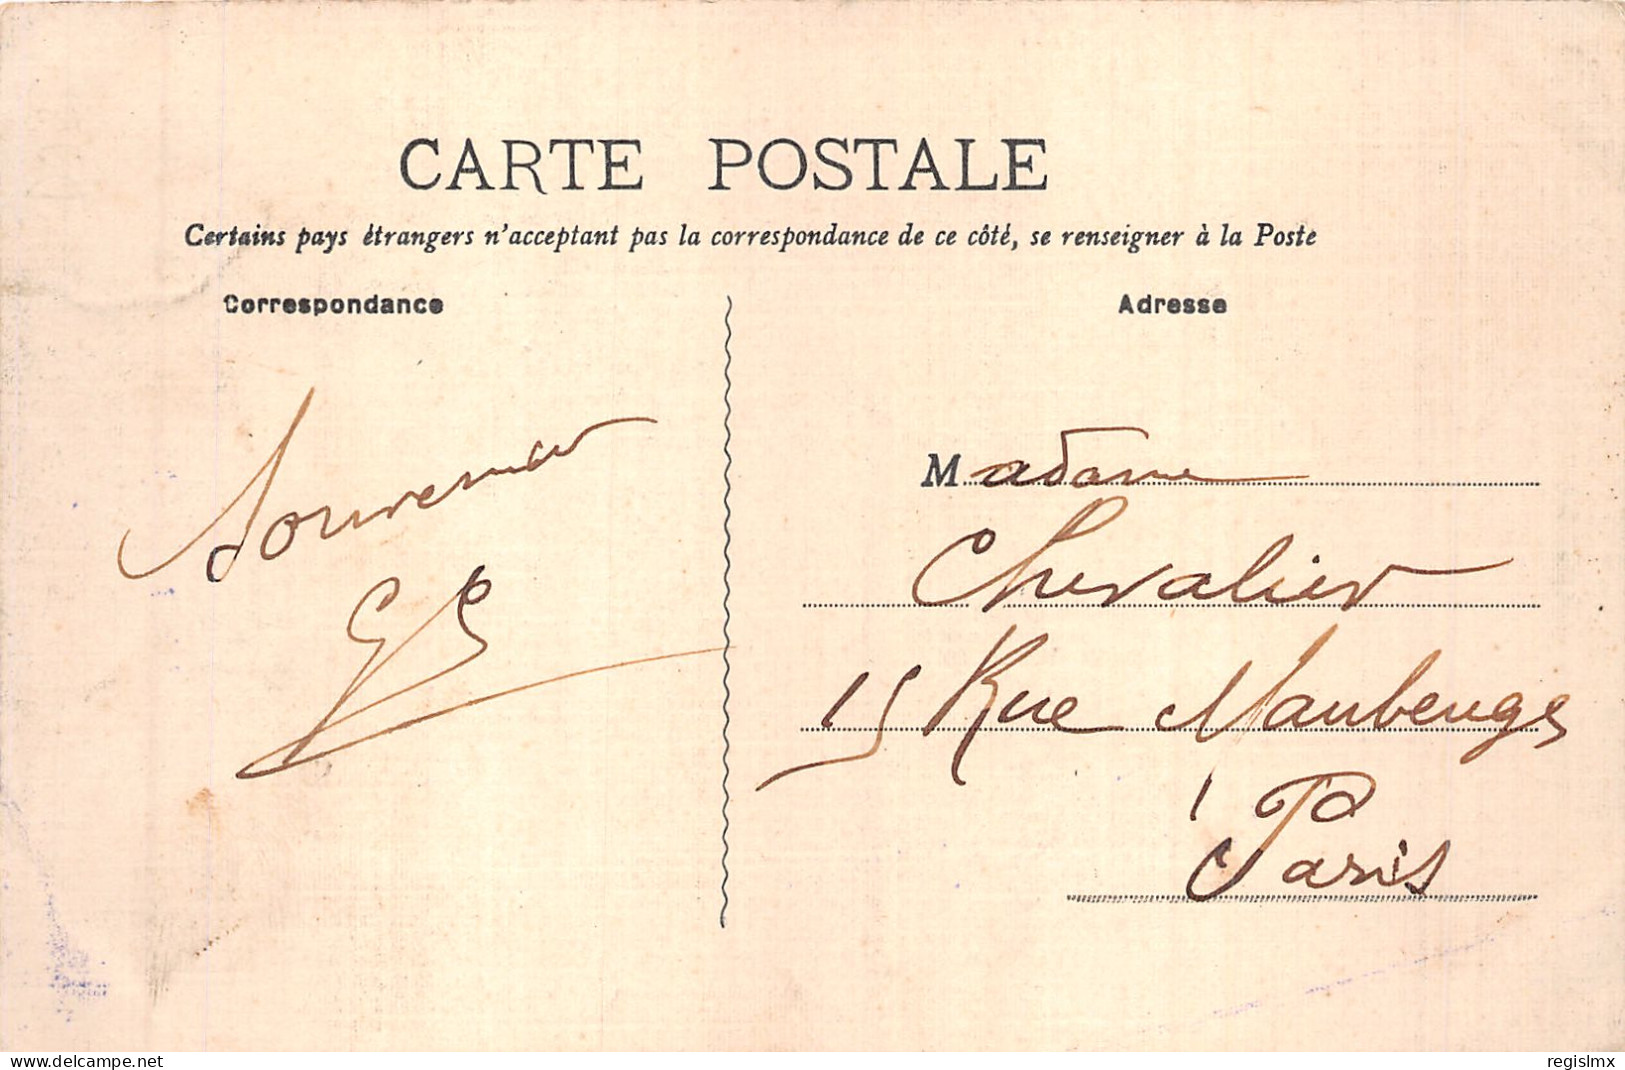 CARTE POSTALE
Certains pays étrangers n'acceptant pas la correspondance de ce côté, se renseigner à la Poste
Correspondance
Adresse
Souvenir
Madame
Chevalier
15 Rue Maubeuge
Paris
www.delcampe.net
regislmx